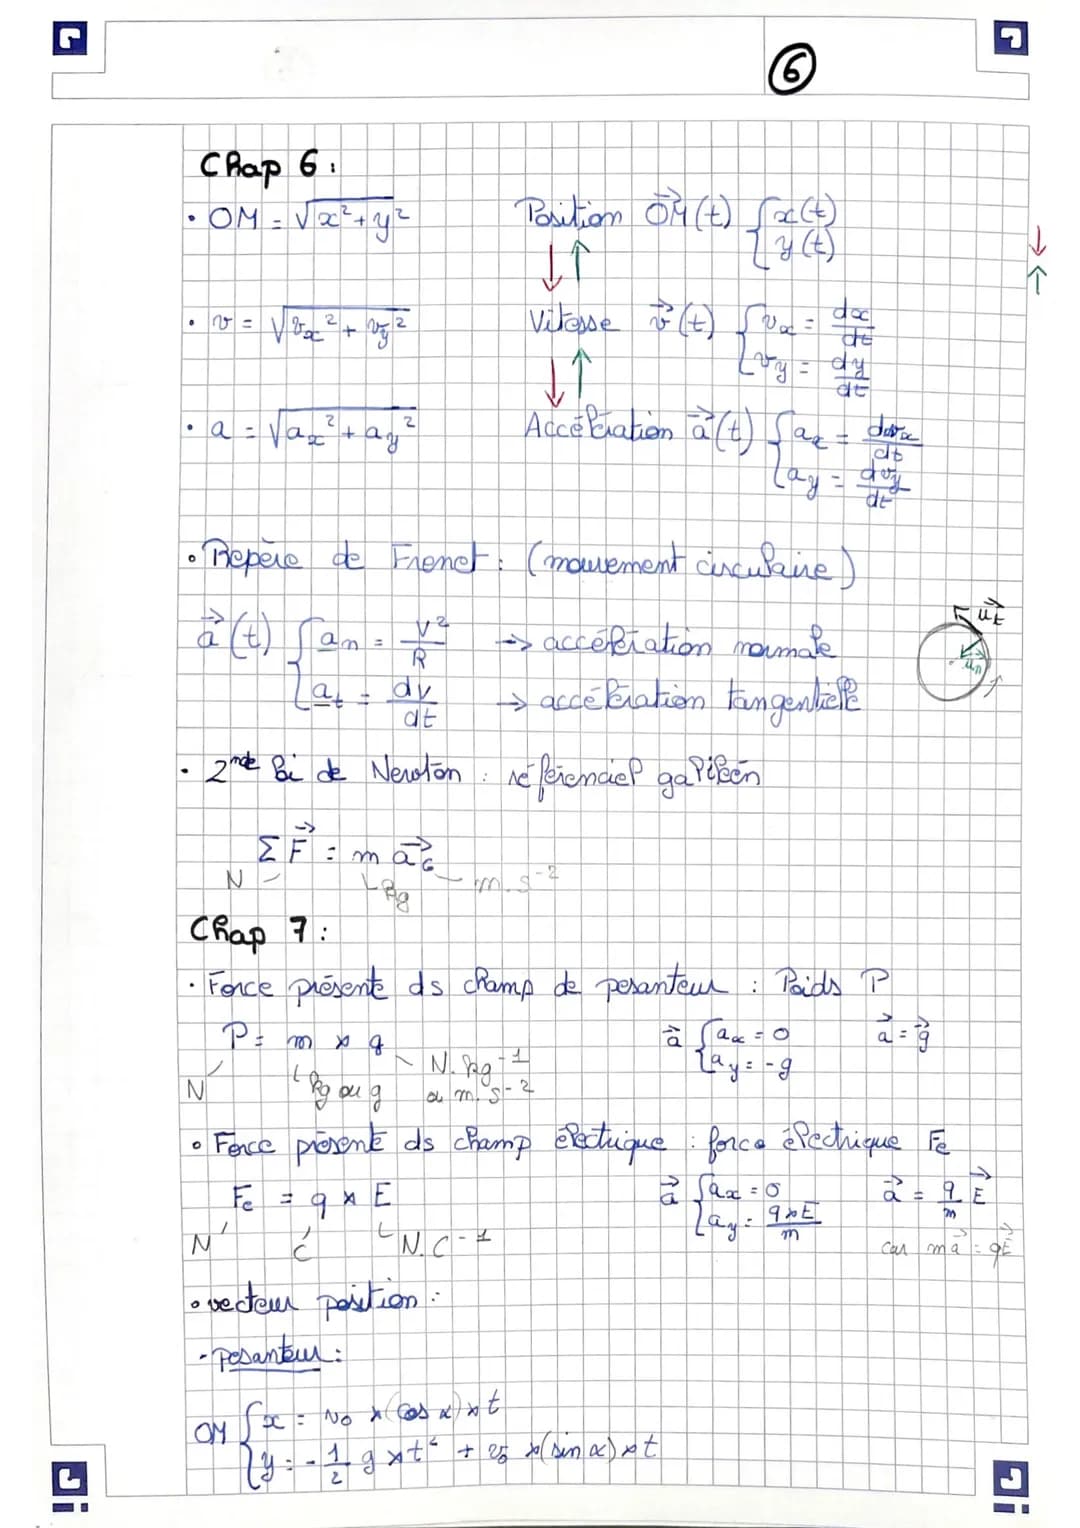 6
Chap 6 :
• OM = √x² + y²
Position OM⃗ (t) { x(t)
y(t)
• v = √vx² + vy²
Vitesse v⃗ (t) { vx = dx/dt
vy = dy/dt
• a = √ax² + ay²
Accélération a⃗ (t) { ax = dvx/dt
ay = dvy/dt
• Repère de Frenet : (mouvement circulaire)
a⃗ (t) { an = V²/R → accélération normale
at = dv/dt → accélération tangentielle
ut⃗
un⃗
• 2nde loi de Newton : référenciel galiléen
Σ F⃗ = m a⃗G
N kg m.s⁻²
Chap 7 :
• Force présente ds champ de pesanteur : Poids P
P = m × g
N kg ou g N.kg⁻¹
ou m.s⁻²
a⃗ { ax = 0
ay = -g
a⃗ = g⃗
• Force présente ds champ électrique : force électrique Fe
Fe = q × E
N C N.C⁻¹
a⃗ { ax = 0
ay = q×E/m
a⃗ = q/m E⃗
car ma⃗ = qE⃗
• vecteur position :
- pesanteur :
OM { x = v0 × (cos α) × t
y = -1/2 g × t² + v0 × (sin α) × t